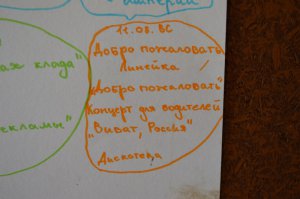 11.06. ВС
Добро пожаловать
Линейка
"Добро пожаловать"
Концерт для водителей
"Виват, Россия"
Дискотека
клада"
рекламы"